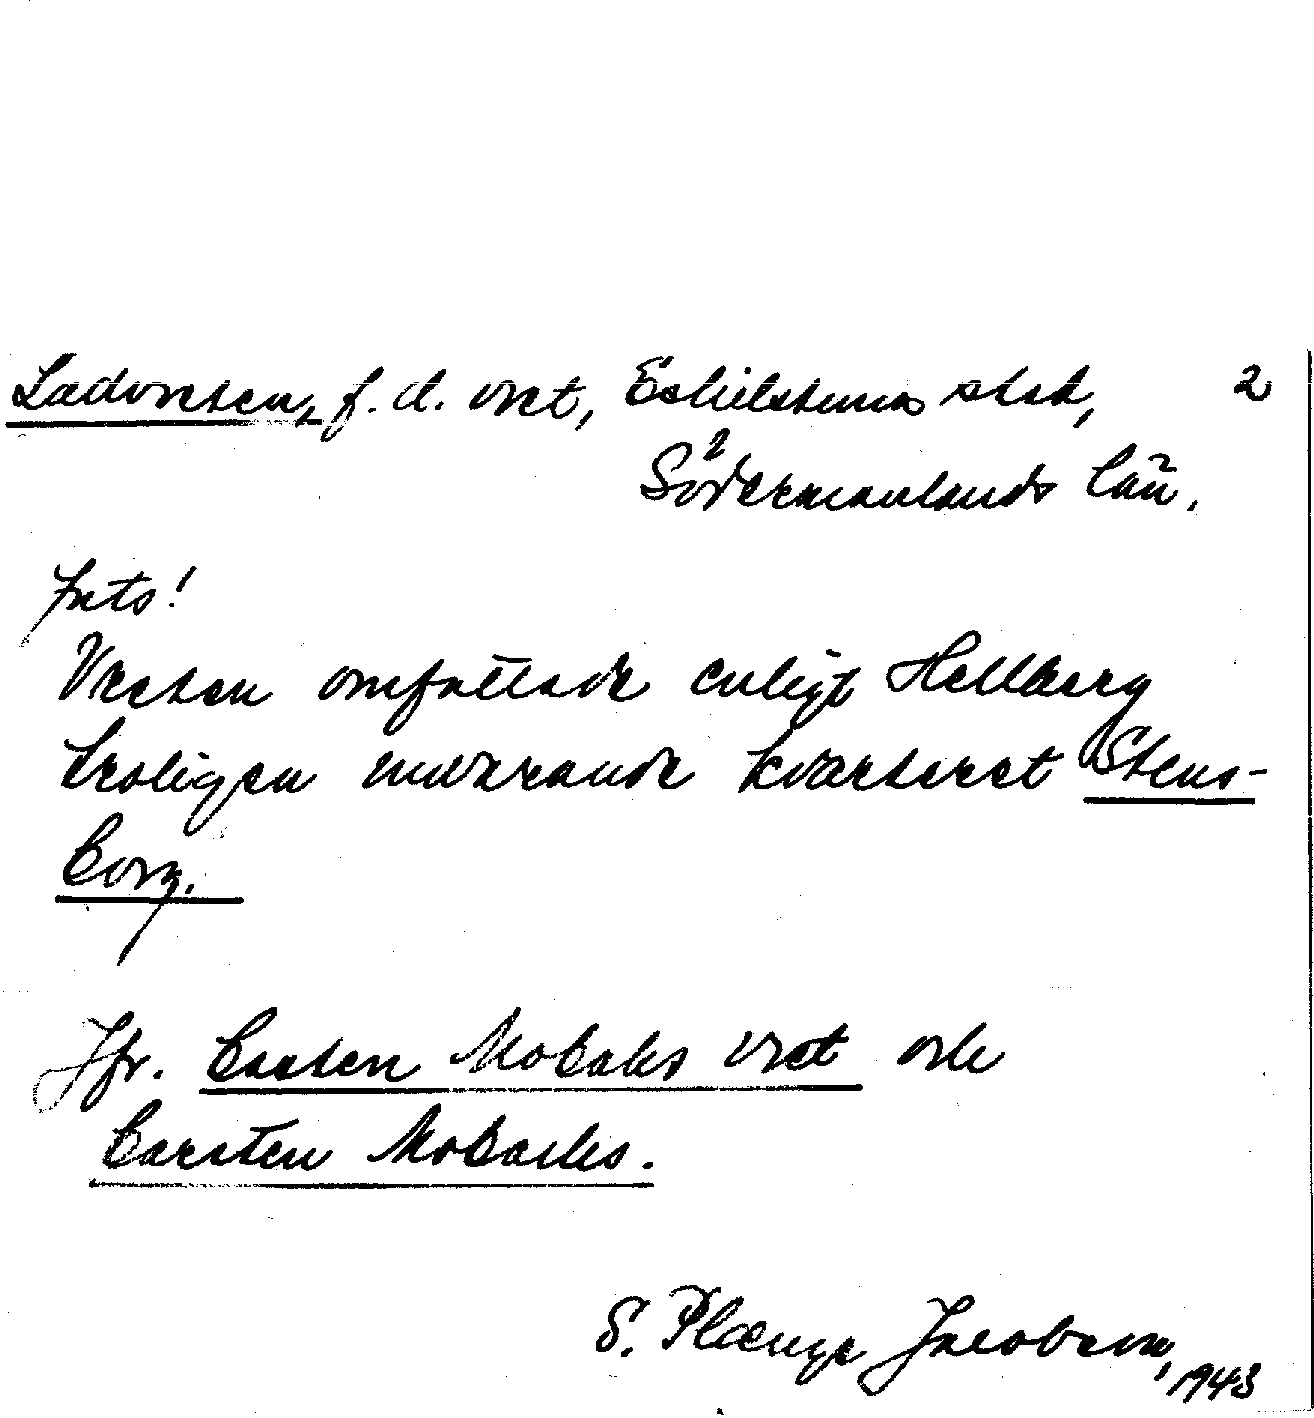 Ladvreten, f. d. vret, Eskilstuna stad, 2
Södermanlands län.
Forts!
Vreten omfattade enligt Hellberg
troligen nuvarande kvarteret Stens-
borg.
Jfr. Carsten Mobaks vret och
Carsten Mobacks.
S. Plænge Jacobson, 1943